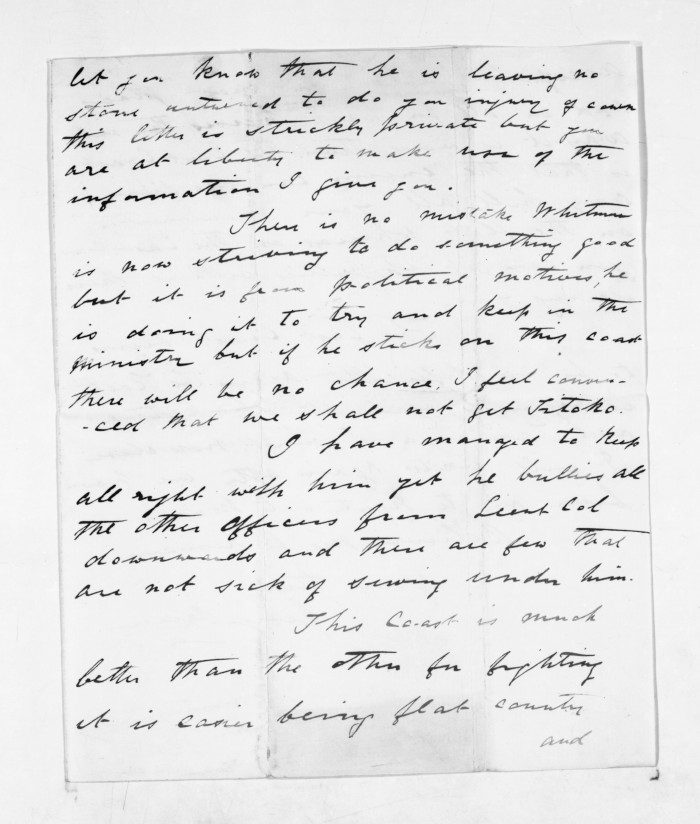 let you know that he is leaving no
stone unturned to do you injury of course
this letter is strickly private but you
are at liberty to make use of the
information I give you.
There is no mistake Whitmore
is now striving to do something good
but it is from political motives, he
is doing it to try and keep in the
ministry but if he sticks on this coast
there will be no chance. I feel convin-
-ced that we shall not get Titoko.
I have managed to keep
all right with him yet he bullies all
the other officers from Lieut Col
downwards and there are few that
are not sick of serving under him.
This Coast is much
better than the other for fighting
it is easier being flat country
and